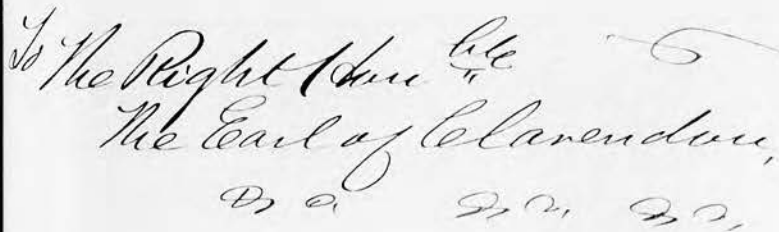 To The Right Honble
The Earl of Clarendon,
&c &c &c